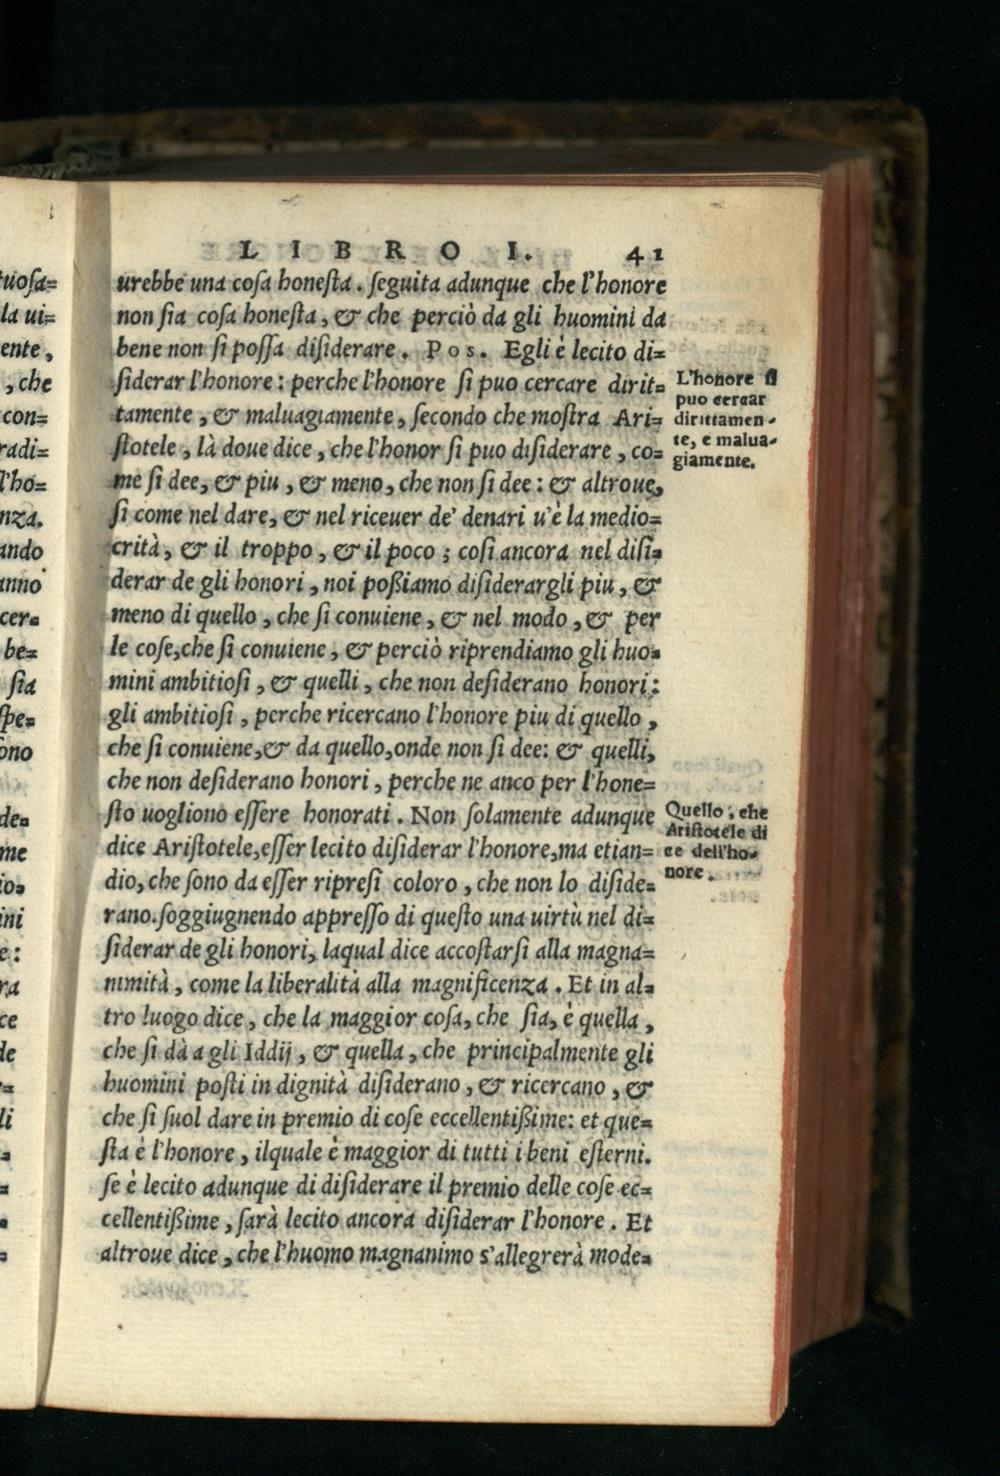 LIBRO I. 41
urebbe una cosa honesta. seguita adunque che l'honore
non sia cosa honesta, & che perciò da gli huomini da
bene non si possa disiderare. Pos. Egli è lecito di=
siderar l'honore: perche l'honore si puo cercare dirit=
tamente, & maluagiamente, secondo che mostra Ari=
stotele, là doue dice, che l'honor si puo disiderare, co=
me si dee, & piu, & meno, che non si dee: & altroue,
si come nel dare, & nel riceuer de' denari u'è la medio=
crità, & il troppo, & il poco; cosi ancora nel disi=
derar de gli honori, noi poßiamo disiderargli piu, &
meno di quello, che si conuiene, & nel modo, & per
le cose, che si conuiene, & perciò riprendiamo gli huo=
mini ambitiosi, & quelli, che non desiderano honori:
gli ambitiosi, perche ricercano l'honore piu di quello,
che si conuiene, & da quello, onde non si dee: & quelli,
che non desiderano honori, perche ne anco per l'hone=
sto uogliono essere honorati. Non solamente adunque
dice Aristotele, esser lecito disiderar l'honore, ma etian=
dio, che sono da esser ripresi coloro, che non lo diside=
rano. soggiugnendo appresso di questo una uirtù nel di=
siderar de gli honori, laqual dice accostarsi alla magna=
nimità, come la liberalità alla magnificenza. Et in al=
tro luogo dice, che la maggior cosa, che sia, è quella,
che si dà a gli Iddij, & quella, che principalmente gli
huomini posti in dignità disiderano, & ricercano, &
che si suol dare in premio di cose eccellentißime: et que=
sta è l'honore, ilquale è maggior di tutti i beni esterni.
se è lecito adunque di disiderare il premio delle cose ec=
cellentißime, sarà lecito ancora disiderar l'honore. Et
altroue dice, che l'huomo magnanimo s'allegrerà mode=
L'honore si
puo cercar
dirittamen-
te, e malua-
giamente.
Quello, che
Aristotele di
ce dell'ho-
nore.
tuosa=
la ui=
ente,
, che
con=
radi=
l'ho=
nza.
ando
anno
cer=
be=
sia
spe=
ono
de=
me
io=
ini
e:
ra
ce
de
li